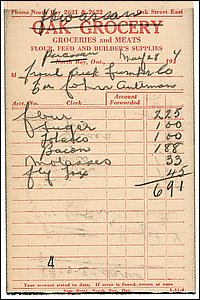 Phone North Bay 2621 & 2622 Oak Street East
OAK GROCERY
GROCERIES and MEATS
FLOUR, FEED AND BUILDER'S SUPPLIES
North Bay, Ont., May 28 193 4
M Trout Creek Lumber Co
Acct. Clerk ACCOUNT FORWARDED
Flour 2 25
Sugar 1 00
1 00
Bacon 1 88
Molasses 33
Fly Tox 45
6 91
4
Your account stated to date. If error is found, return at once